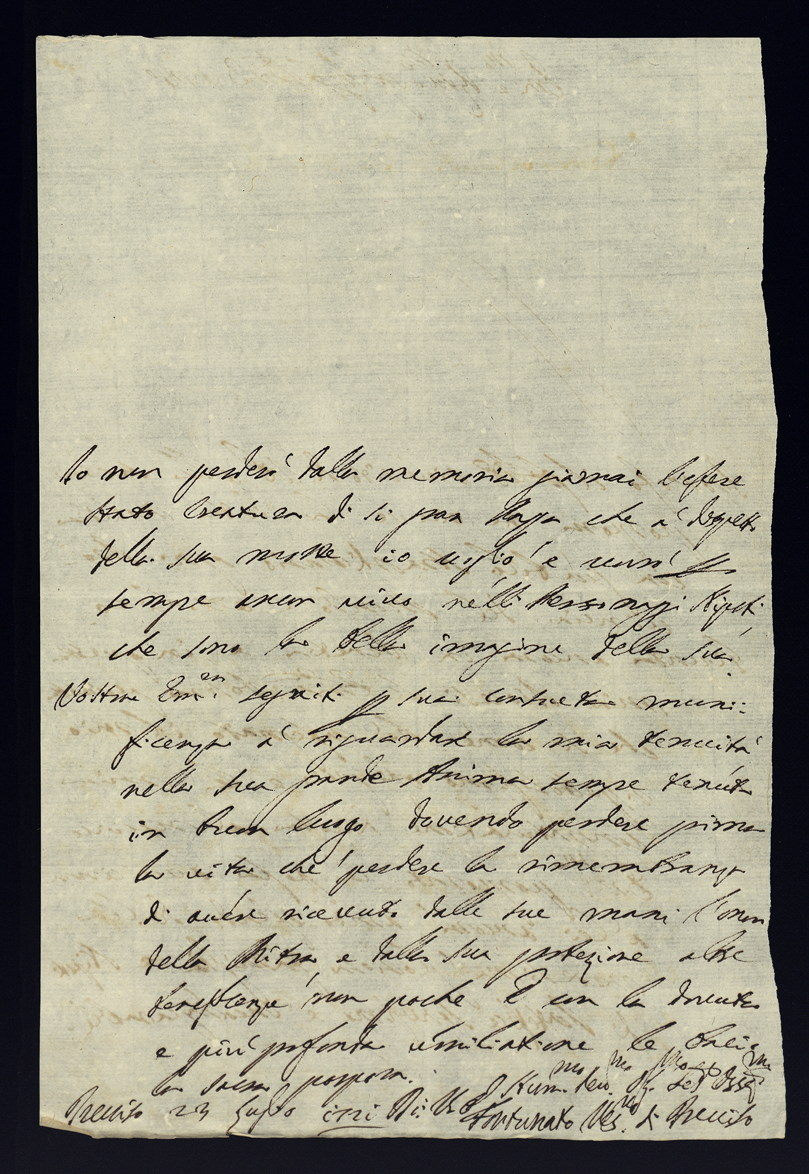 Io non perderò dalla memoria giamai l'essere
stato Creatura di si gran che a' dispetto
della sua morte io voglio e
sempre ancor vivo nelli Personaggi Nipoti
che sono la bella imagine della sua
Vostra Em.en seguiti p sua consueta muni:
ficenza a' riguardar la mia tenuità
nella sua grande Anima sempre tenuta
in buon luogo dovendo perdere prima
la vita che perdere la rimembranza
di avere ricevuto dalle sue mani l'onor
della Mitra e dalla sua protezione altre
beneficenze non poche E con la dovuta
e più profonda umiliatione le bacio
la sacra porpora.
23 Luglio Di V. E.
Fortunato Ves.vo di